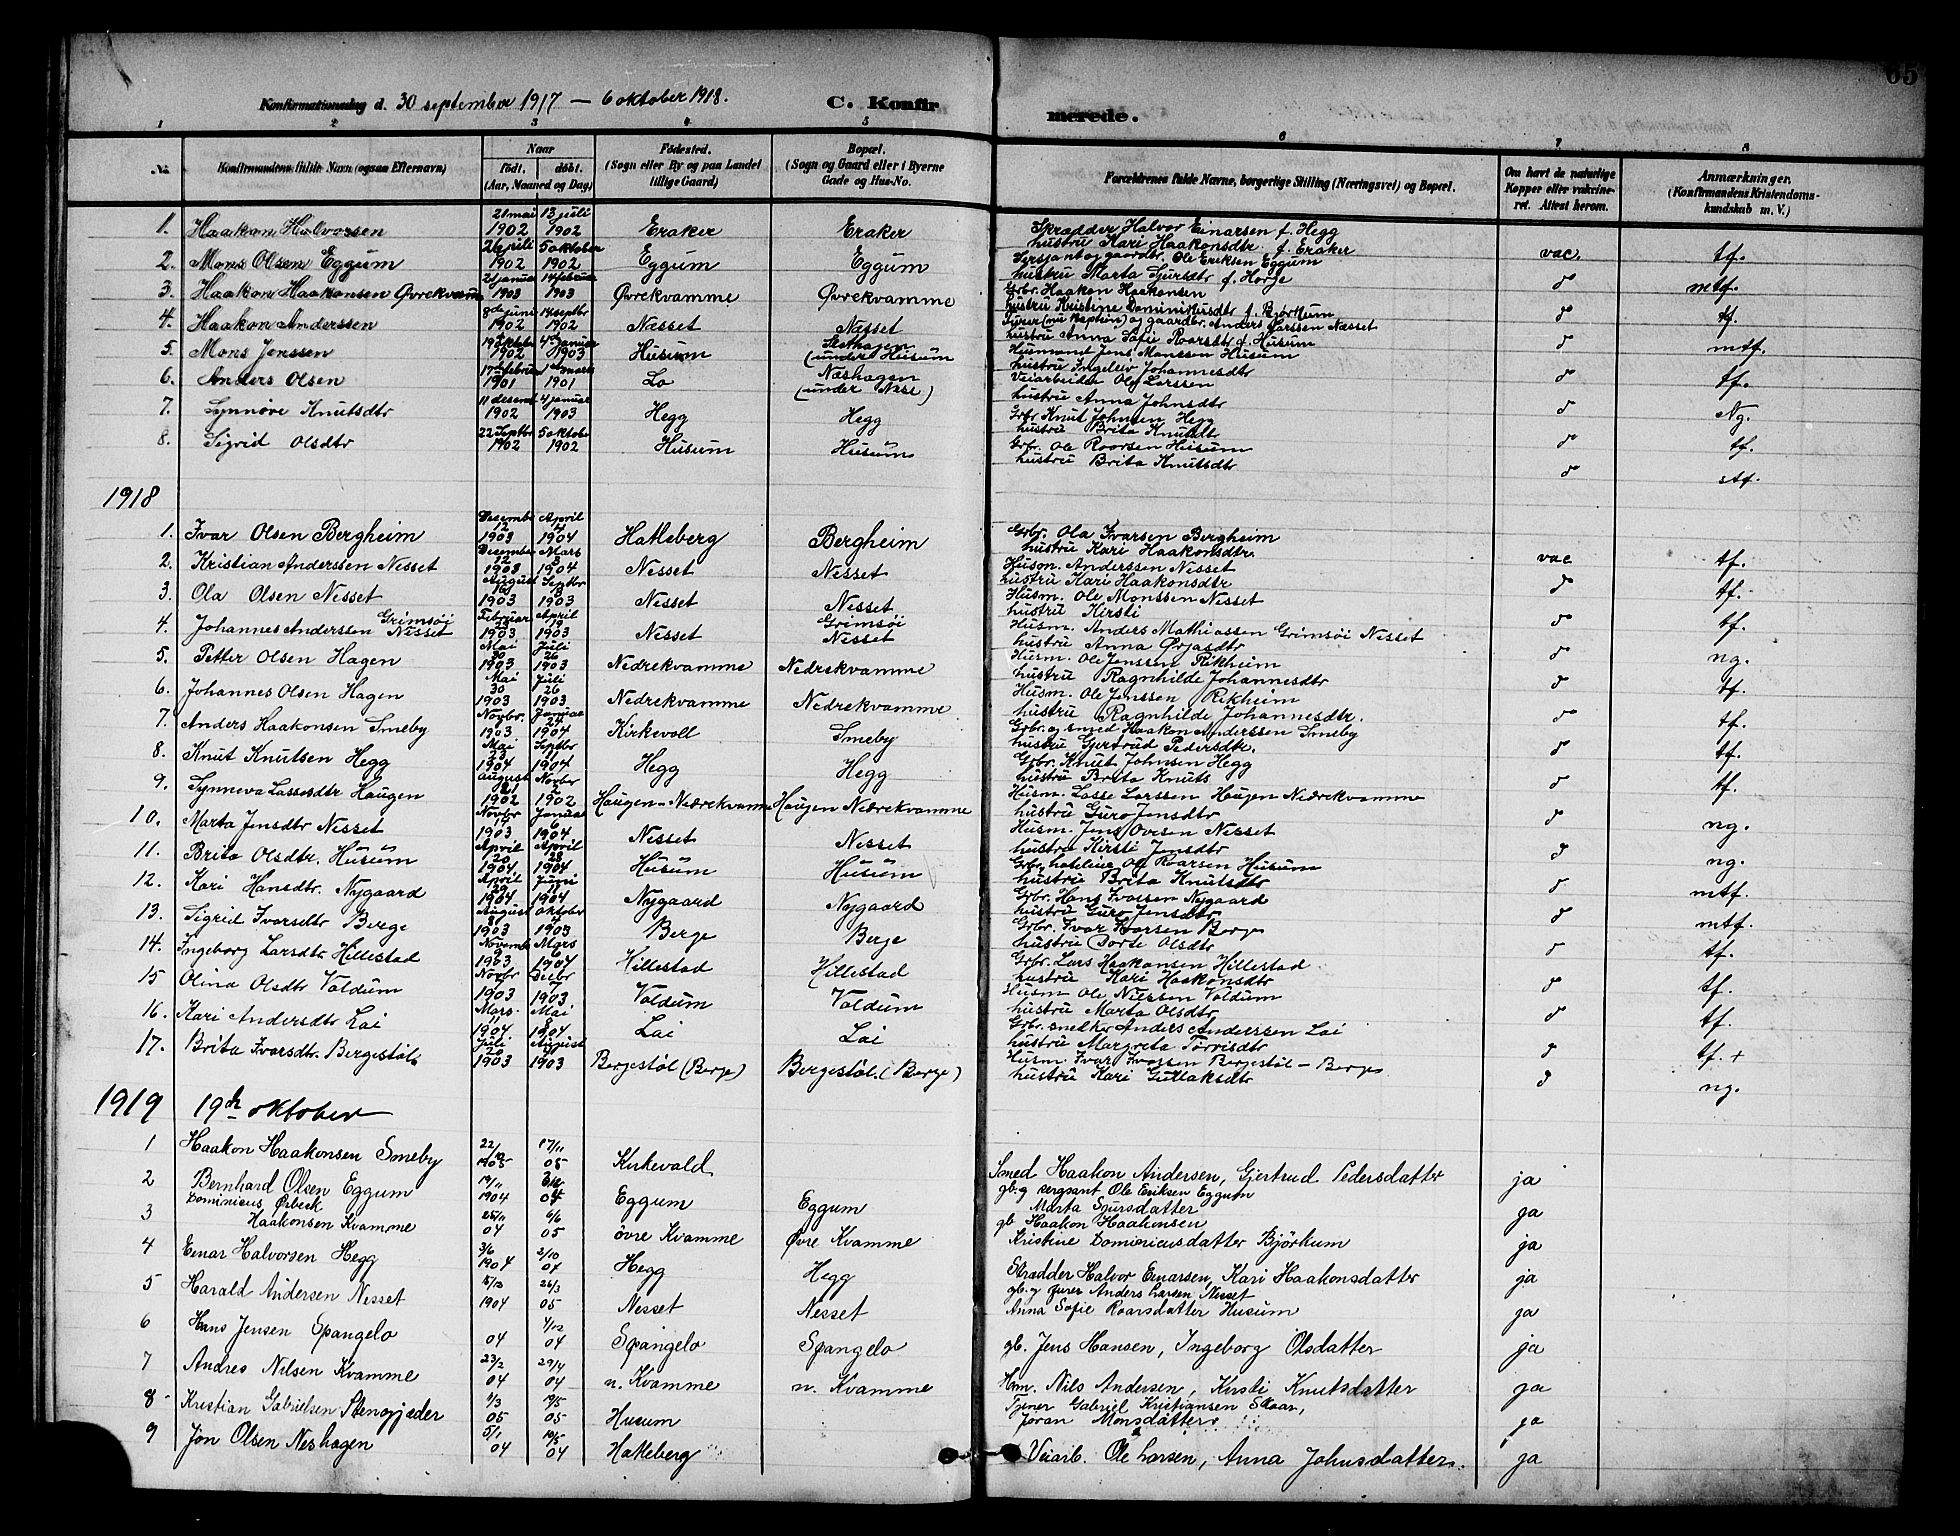 65
Konfirmationsdag d. 30 september 1917 — 6 oktober 1918.
C. Konfirmerede.
1 2 3 4 5 6 7 8
No. Konfirmandens fulde Navn (ogsaa Efternavn) Naar født. døbt. (Aar, Maaned og Dag) Fødested. (Sogn eller By og paa Landet tillige Gaard) Bopæl. (Sogn og Gaard eller i Byerne Gade og Hus-No. Forældrenes fulde Navne, borgerlige Stilling (Næringsvei) og Bopæl. Om havt de naturlige Kopper eller vakcineret. Attest herom. Anmærkninger. (Konfirmandens Kristendomskundskab m. V.)
1. Haakon Halvorsen 21 mai 1902 13 juli 1902 Eraker Eraker Skrædder Halvor Einarsen f. Hegg
hustru Kari Haakonsdtr. f. Eraker vac. tf.
2. Mons Olsen Eggum 26 juli 1902 5 oktober 1902 Eggum Eggum Sersjant og gaardbr. Ole Eriksen Eggum
hustru Marta Sjursdtr f. Horge d mtf.
3. Haakon Haakonsen Øvrekvam 21 januar 1903 14 februar 1903 Øvrekvamme Øvrekvamme Grbr. Haakon Haakonsen
hustru Kristine Dominikusdtr f. Bjørkum d tf.
4. Haakon Anderssen 8de juni 1902 14 septbr 1902 Næsset Næsset Furer (nu kaptein) og gaardbr. Anders Larssen Næsset
hustru Anna Sofie Roarsdtr f. Husum d mtf.
5. Mons Jenssen 19 oktober 1902 4de januar 1903 Husum (under Husum Husmand Jens Monssen Husum
hustru Ingeleiv Johannesdtr d tf.
6. Anders Olsen 17de februar 1901 mars 1901 Lo Næshagen (under Nese) Veiarbeider Ole Larssen
hustru Anna Johnsdtr d Ng.
7. Synnøve Knutsdtr 11 desemt 1902 4 januar 1903 Hegg Hegg Grbr Knut Johnsen Hegg
hustru Brita Knutsdtr d tf.
8. Sigrid Olsdtr 22 septbr 1902 5 oktober 1902 Husum Husum Grbr. Ole Roarsen Husum
hustru Brita Knutsdtr d stf.
1918
1. Ivar Olsen Bergheim Decembe 12 1903 April 4 1904 Hatleberg Bergheim Grbr. Ola Ivarsen Bergheim
hustru Kari Haakonsdtr. vac tf.
2. Kristian Anderssen Nesset Desember 12 1903 Mars 1904 Nesset Nesset Husm. Anderssen Nesset
hustru Kari Haakonsdtr d tf.
3. Ola Olsen Nesset August 16 1903 Septbr 1903 Nesset Nesset Husm. Ole Monssen Nesset
hustru Kirsti d tf.
4. Johannes Anderssen Grimsøi Nesset Februar 23 1903 April 19 1903 Nesset Grimsøi Nesset Husm. Anders Mathiassen Grimsøi Nesset
hustru Anna Ørjasdtr d ng.
5. Petter Olsen Hagen Mai 30 1903 Juli 26 1903 Nedrekvamme Nedrekvamme Husm. Ole Jenssen Rikheim
hustru Ragnhilde Johannesdtr d tf.
6. Johannes Olsen Hagen Mai 30 1903 Juli 26 1903 Nedrekvamme Nedrekvamme Husm. Ole Jenssen Rikheim
hustru Ragnhilde Johannesdtr. d tf.
7. Anders Haakonsen Smeby Novbr. 1903 Januar 24 1904 Kirkevoll Smeby Grbr. og smed Haakon Anderssen Smeby
hustru Gjertrud Pedersdtr. d tf.
8. Knut Knutsen Hegg Mai 23 1904 Septbr 11 1904 Hegg Hegg Grbr. Knut Johnsen Hegg
hustru Brita Knuts d tf.
9. Synneva Lassesdtr Haugen August 21 1902 Novber 2 1902 Haugen-Nedrekvamme Haugen Nedrekvamme Husm. Lasse Larssen Haugen Nedrekvamme
hustru Guro Jensdtr d ng.
10. Marta Jensdtr Nesset Novbr 17 1903 Januar 6 1904 Nesset Nesset Husm. Jens Ovesen Nesset
hustru Kirsti Jensdtr d ng.
11. Brita Olsdtr. Husum April 20 1904 April 28 1904 Husum Husum Grbr. hoteleier Ole Roarsen Husum
hustru Brita Knutsdtr d mtf.
12. Kari Hansdtr. Nygaard April 29 1904 Juni 1904 Nygaard Nygaard Grbr. Hans Ivarsen Nygaard
hustru Guro Jensdtr d mtf.
13. Sigrid Ivarsdtr Berge August 1903 Oktober 4 1903 Berge Berge Grbr. Ivar Ivarsen Berge
hustru Dorte Olsdtr d tf.
14. Ingeborg Larsdtr Hillestad Novembe 2 1903 Mars 6 1904 Hillestad Hillestad Grbr. Lars Haakonsen Hillestad
hustru Kari Haakonsdtr d tf.
15 Olina Olsdtr Voldum Novbr 1903 Decbr 1903. Voldum Voldum Husm Ole Nilssen Voldum
hustru Marta Olsdtr d tf.
16. Kari Andersdtr Lai Mars 11 1904 Mai 8 1904 Lai Lai Grbr. snekker Anders Anderssen Lai
hustru Margreta Torrisdtr d tf. +
17. Brita Ivarsdtr. Bergestøl Juli 20 1903 August 1903 Bergestøl (Berge) Bergestøl. (Berge) Husm. Ivar Ivarsen Bergestøl - Berge
hustru Kari Gullaksdtr d ng.
1919 19de oktober
1 Haakon Haakonsen Smeby 22/10 1905 17/11 05 Kirkevold Smed Haakon Andersen, Gjertrud Pedersdatter ja
2 Bernhard Olsen Eggum 19/11 1904 04 Eggum Eggum gb. og sergsant Ole Eriksen Eggum
Marta Sjursdatter ja
3 Dominicus Ørbeck Haakonsen Kvamme 25/11 04 6/6 05 øvre Kvamme Øvre Kvamme gb Haakon Haakonsen
Kristine Dominicusdatter Bjørkum ja
4 Einar Halvorsen Hegg 3/6 1904 2/10 04 Hegg Hegg Skrædder Halvor Einarsen, Kari Haakonsdatter ja
5 Harald Andersen Nesset 15/12 1904 26/3 05 Nesset Nesset gb. og furer Anders Larsen Nesset
Anna Sofie Roarsdatter Husum ja
6 Hans Jensen Spangelo 04 4/12 04 Spangelo Spangelo gb. Jens Hansen, Ingeborg Olsdatter ja
7 Andres Nilsen Kvamme 23/2 04 29/4 04 n. Kvamme n. Kvamme Hm. Nils Andersen, Kirsti Knutsdatter ja
8 Kristian Gabrielsen Stengjæder 4/3 05 19/5 05 Husum Tjener Gabriel Kristiansen Skaar,
Jøran Monsdatter ja
9 Jon Olsen Neshagen 5/1 04 10/5 04 Hatleberg Veiarb. Ole Larsen, Anna Johnsdatter. ja